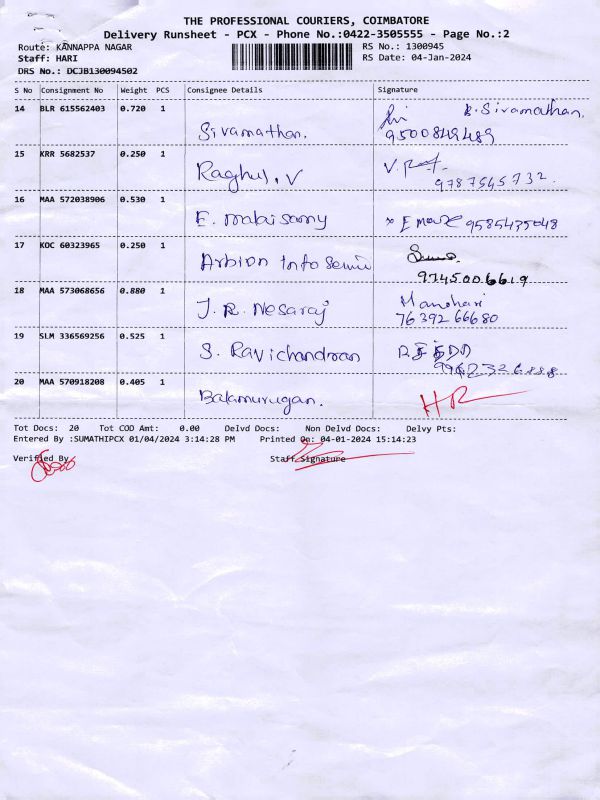 THE PROFESSIONAL COURIERS, COIMBATORE
Delivery Runsheet - PCX - Phone No.:0422-3505555 - Page No.:2
Route: KANNAPPA NAGAR RS No.: 1300945
Staff: HARI RS Date: 04-Jan-2024
DRS No.: DCJB130094502
S No Consignment No Weight PCS Consignee Details Signature
14 BLR 615562403 0.720 1 Sivamathan. B. Sivamathan.
9500849489
15 KRR 5682537 0.250 1 Raghul. V
9787545732.
16 MAA 572038906 0.530 1 E. malaisamy 9585435048
17 KOC 60323965 0.250 1 Arbion Info
9745006619
18 MAA 573068656 0.880 1 J. R. Nesaraj Manohari
76392 66680
19 SLM 336569256 0.525 1 S. Ravichandran
20 MAA 570918208 0.405 1 Balamurugan. HR
Tot Docs: 20 Tot COD Amt: 0.00 Delvd Docs: Non Delvd Docs: Delvy Pts:
Entered By :SUMATHIPCX 01/04/2024 3:14:28 PM Printed On: 04-01-2024 15:14:23
Verified By Staff Signature